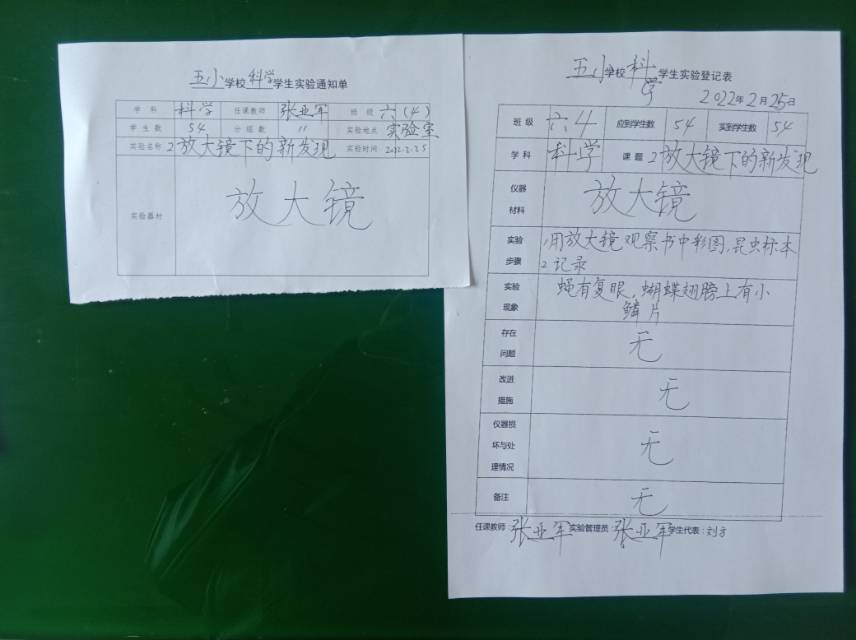 五小学校科学学生实验通知单
学科 科学 任课教师 张亚军 班级 六(4)
学生数 54 分组数 11 实验地点 实验室
实验名称 2放大镜下的新发现 实验时间 2022.2.25
实验器材 放大镜
五小学校科学学生实验登记表
2022年2月25日
班级 六4 应到学生数 54 实到学生数 54
学科 科学 课题 2放大镜下的新发现
仪器材料 放大镜
实验步骤 1用放大镜观察书中彩图,昆虫标本
2记录
实验现象 蝇有复眼,蝴蝶翅膀上有小
鳞片
存在问题 无
改进措施 无
仪器损坏与处理情况 无
备注 无
任课教师:张亚军 实验管理员:张亚军 学生代表:刘方